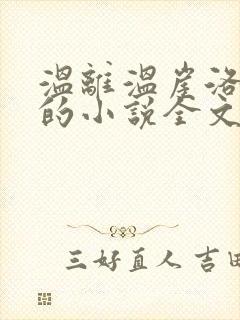 温離温崖洛
的小説全文
三好直人 吉田